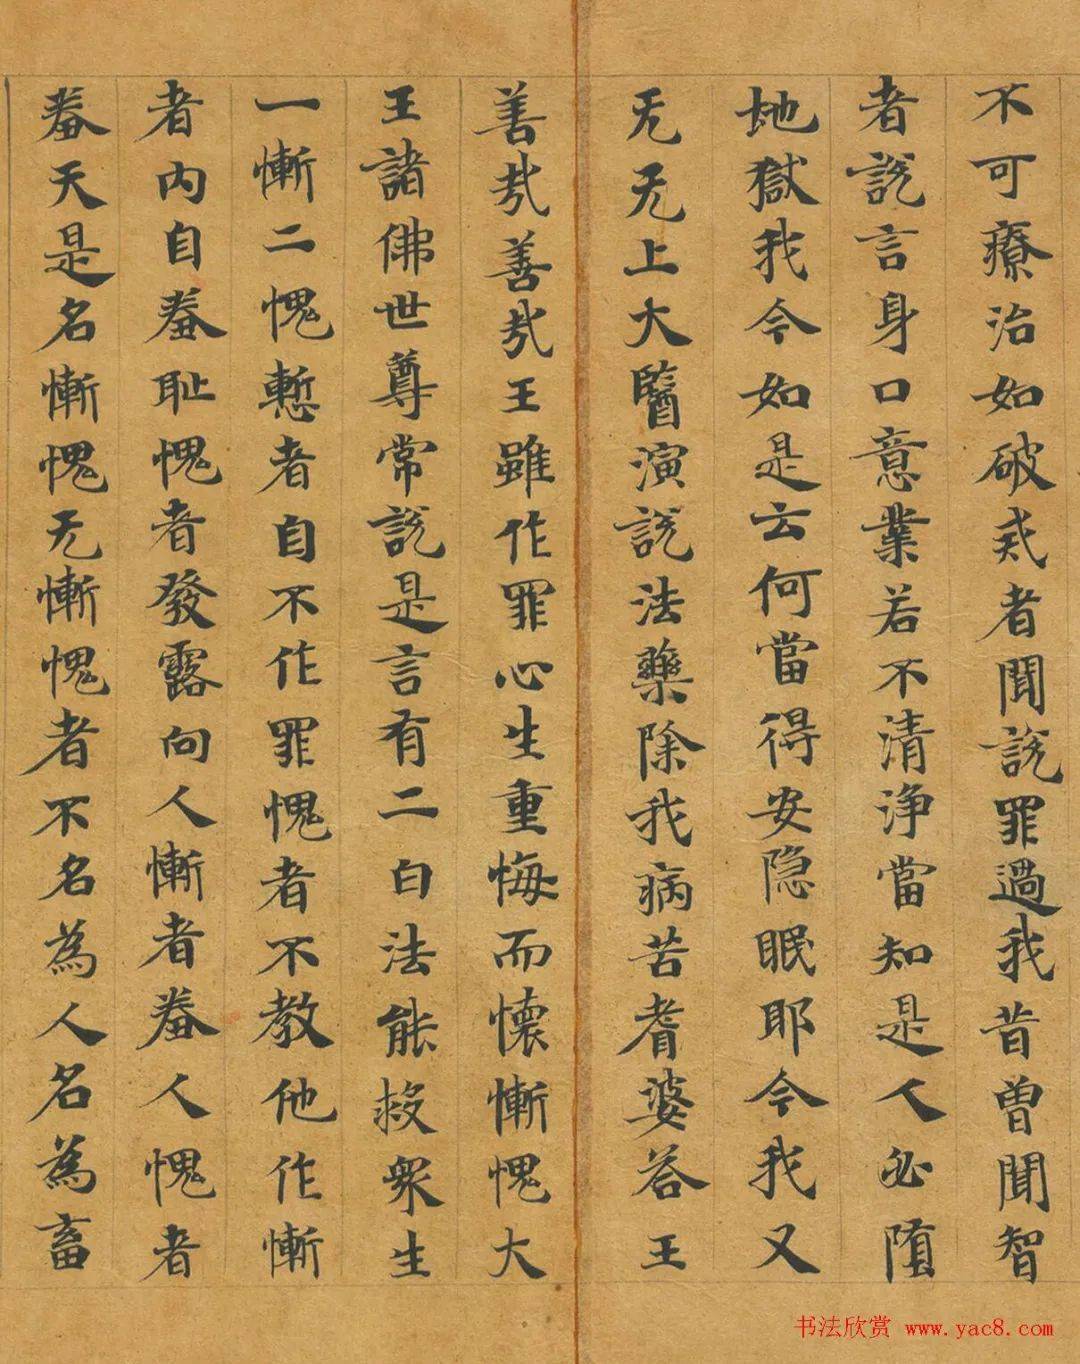 不可療治如破戒者聞說罪過我昔曾聞智
者說言身口意業若不清淨當知是人必墮
地獄我今如是云何當得安隐眠耶今我又
无无上大醫演說法藥除我病苦耆婆答王
善哉善哉王雖作罪心生重悔而懷慚愧大
王諸佛世尊常說是言有二白法能救衆生
一慚二愧慙者自不作罪愧者不教他作慚
者內自羞耻愧者發露向人慚者羞人愧者
羞天是名慚愧无慚愧者不名為人名為畜
书法欣赏 www.yac8.com